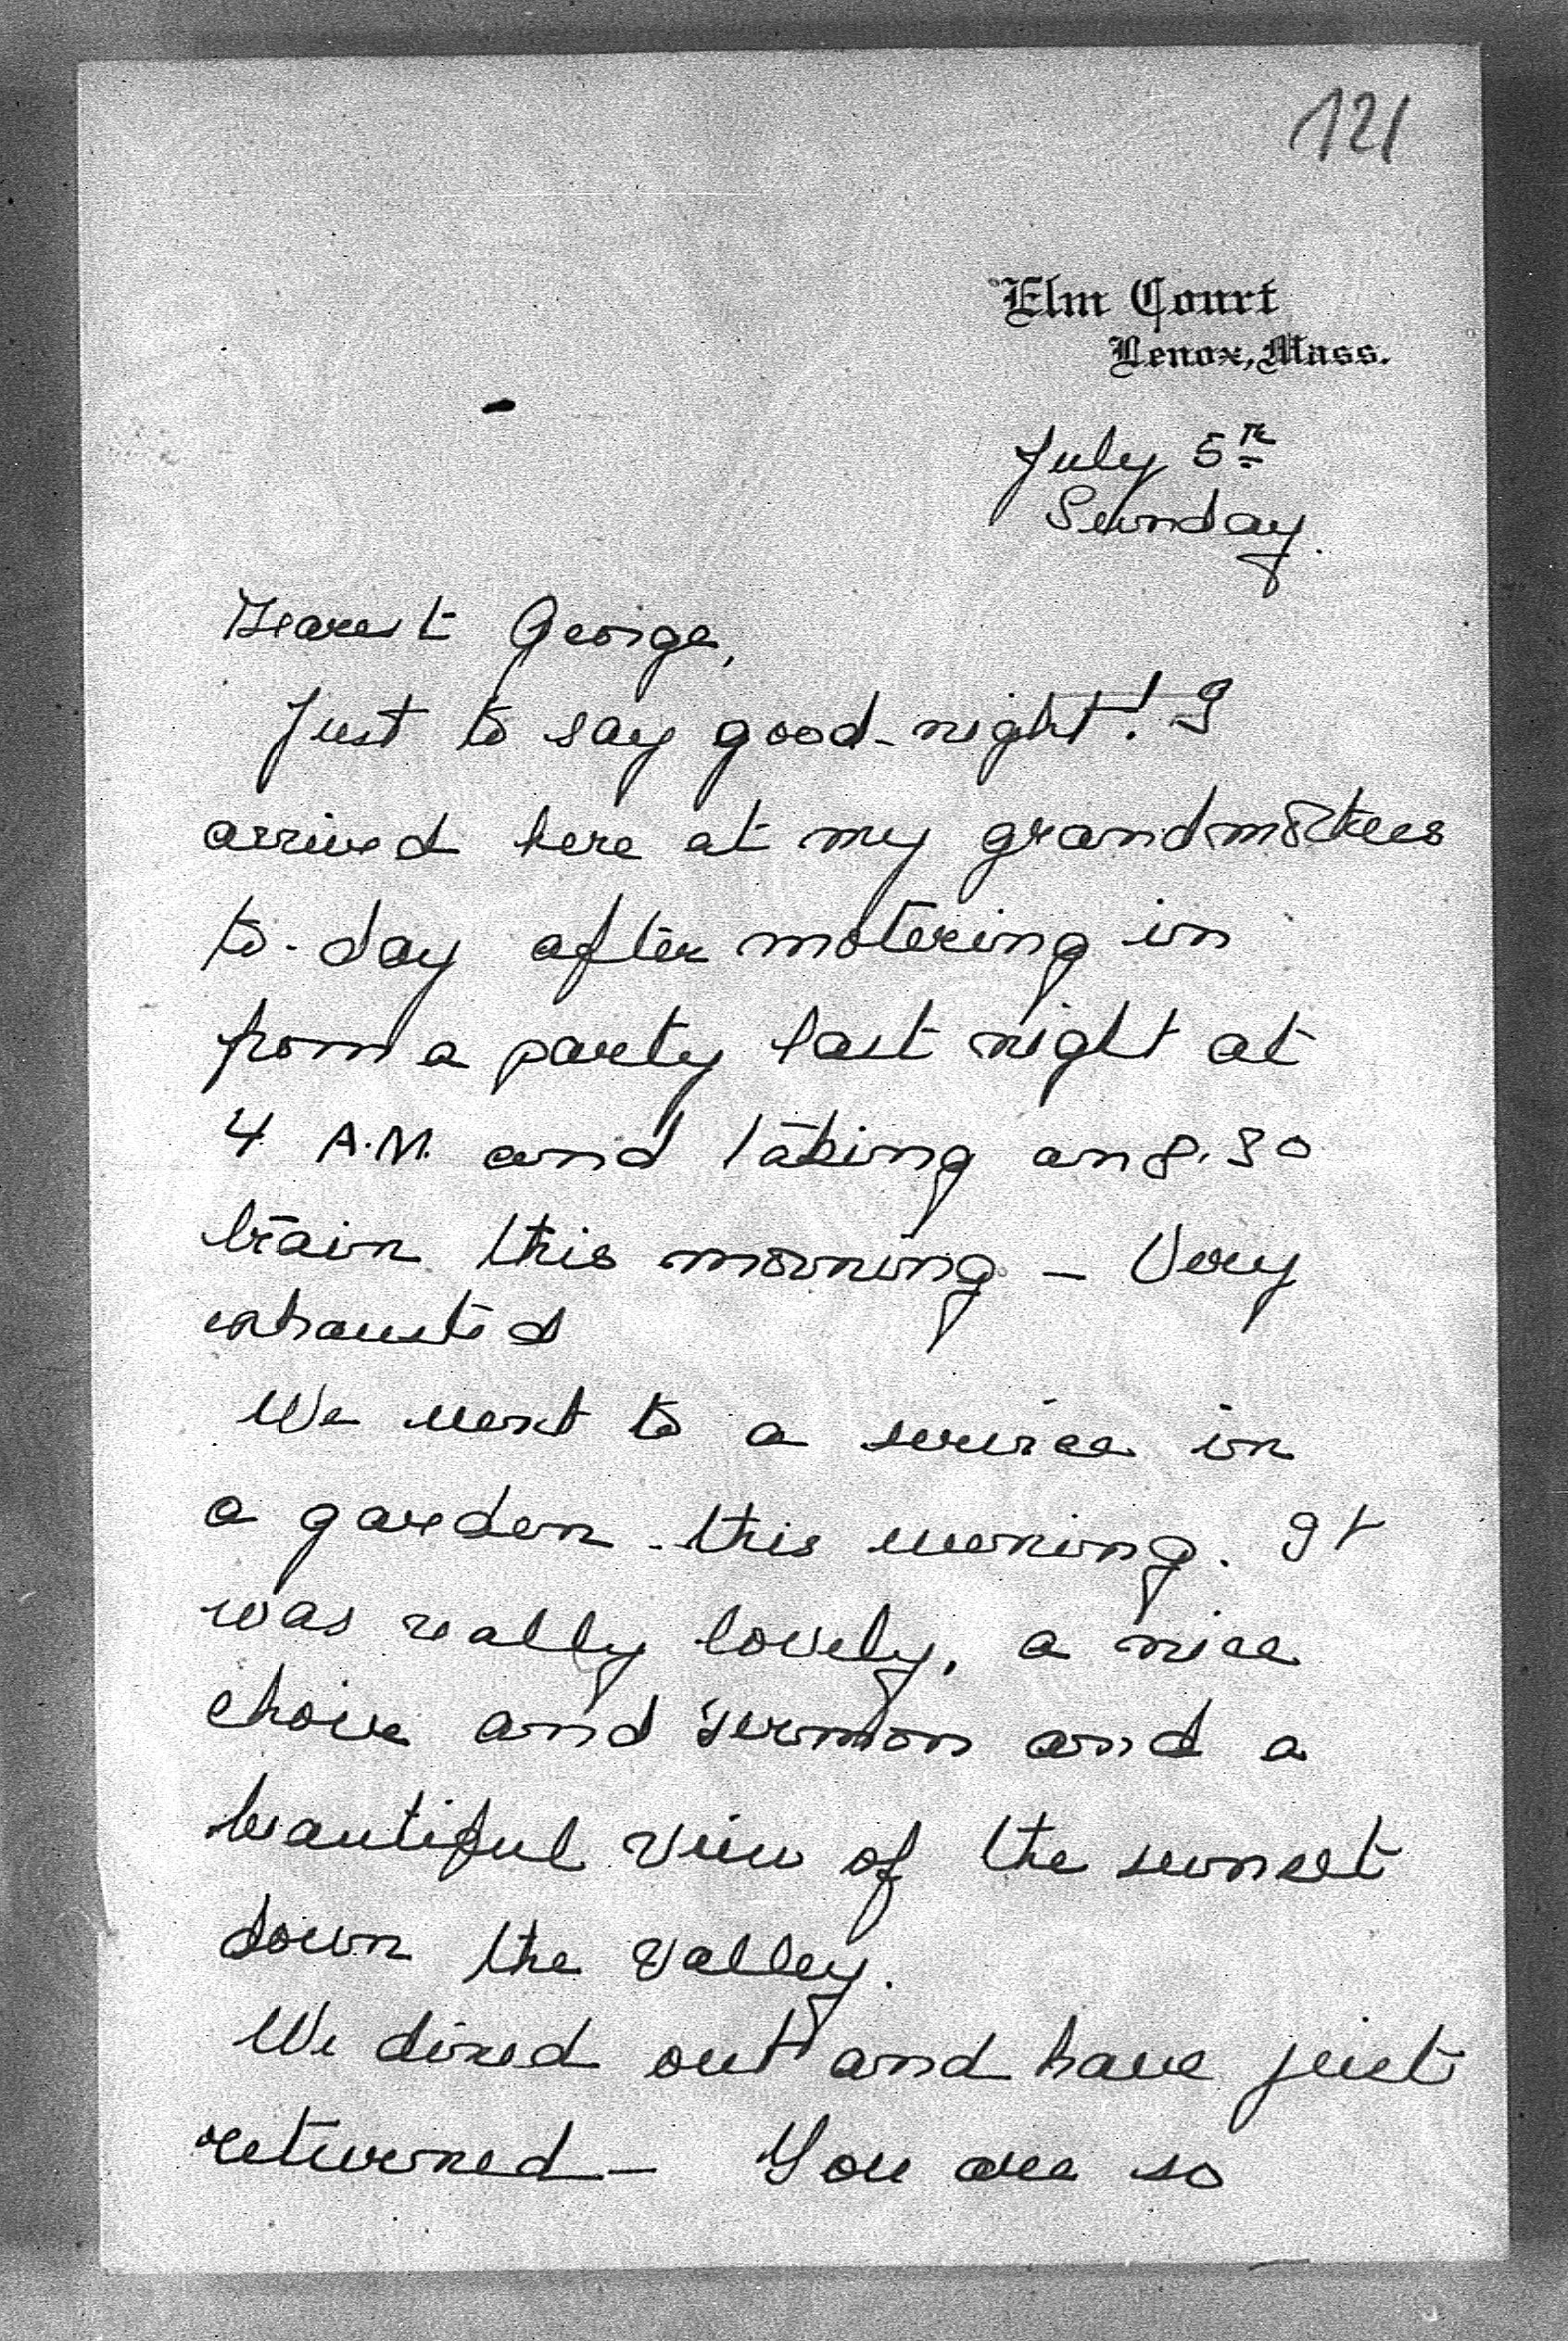 121
Elm Court
Lenox, Mass.
July 5th
Sunday.
Dearest George,
Just to say good-night! I
arrived here at my grandmothers
to-day after motoring in
from a party last night at
4 A.M. and taking an 8.30
train this morning – Very
exhausted
We went to a service in
a garden this evening. It
was really lovely, a nice
choir and sermon and a
beautiful view of the sunset
down the valley.
We dined out and have just
returned – You are so